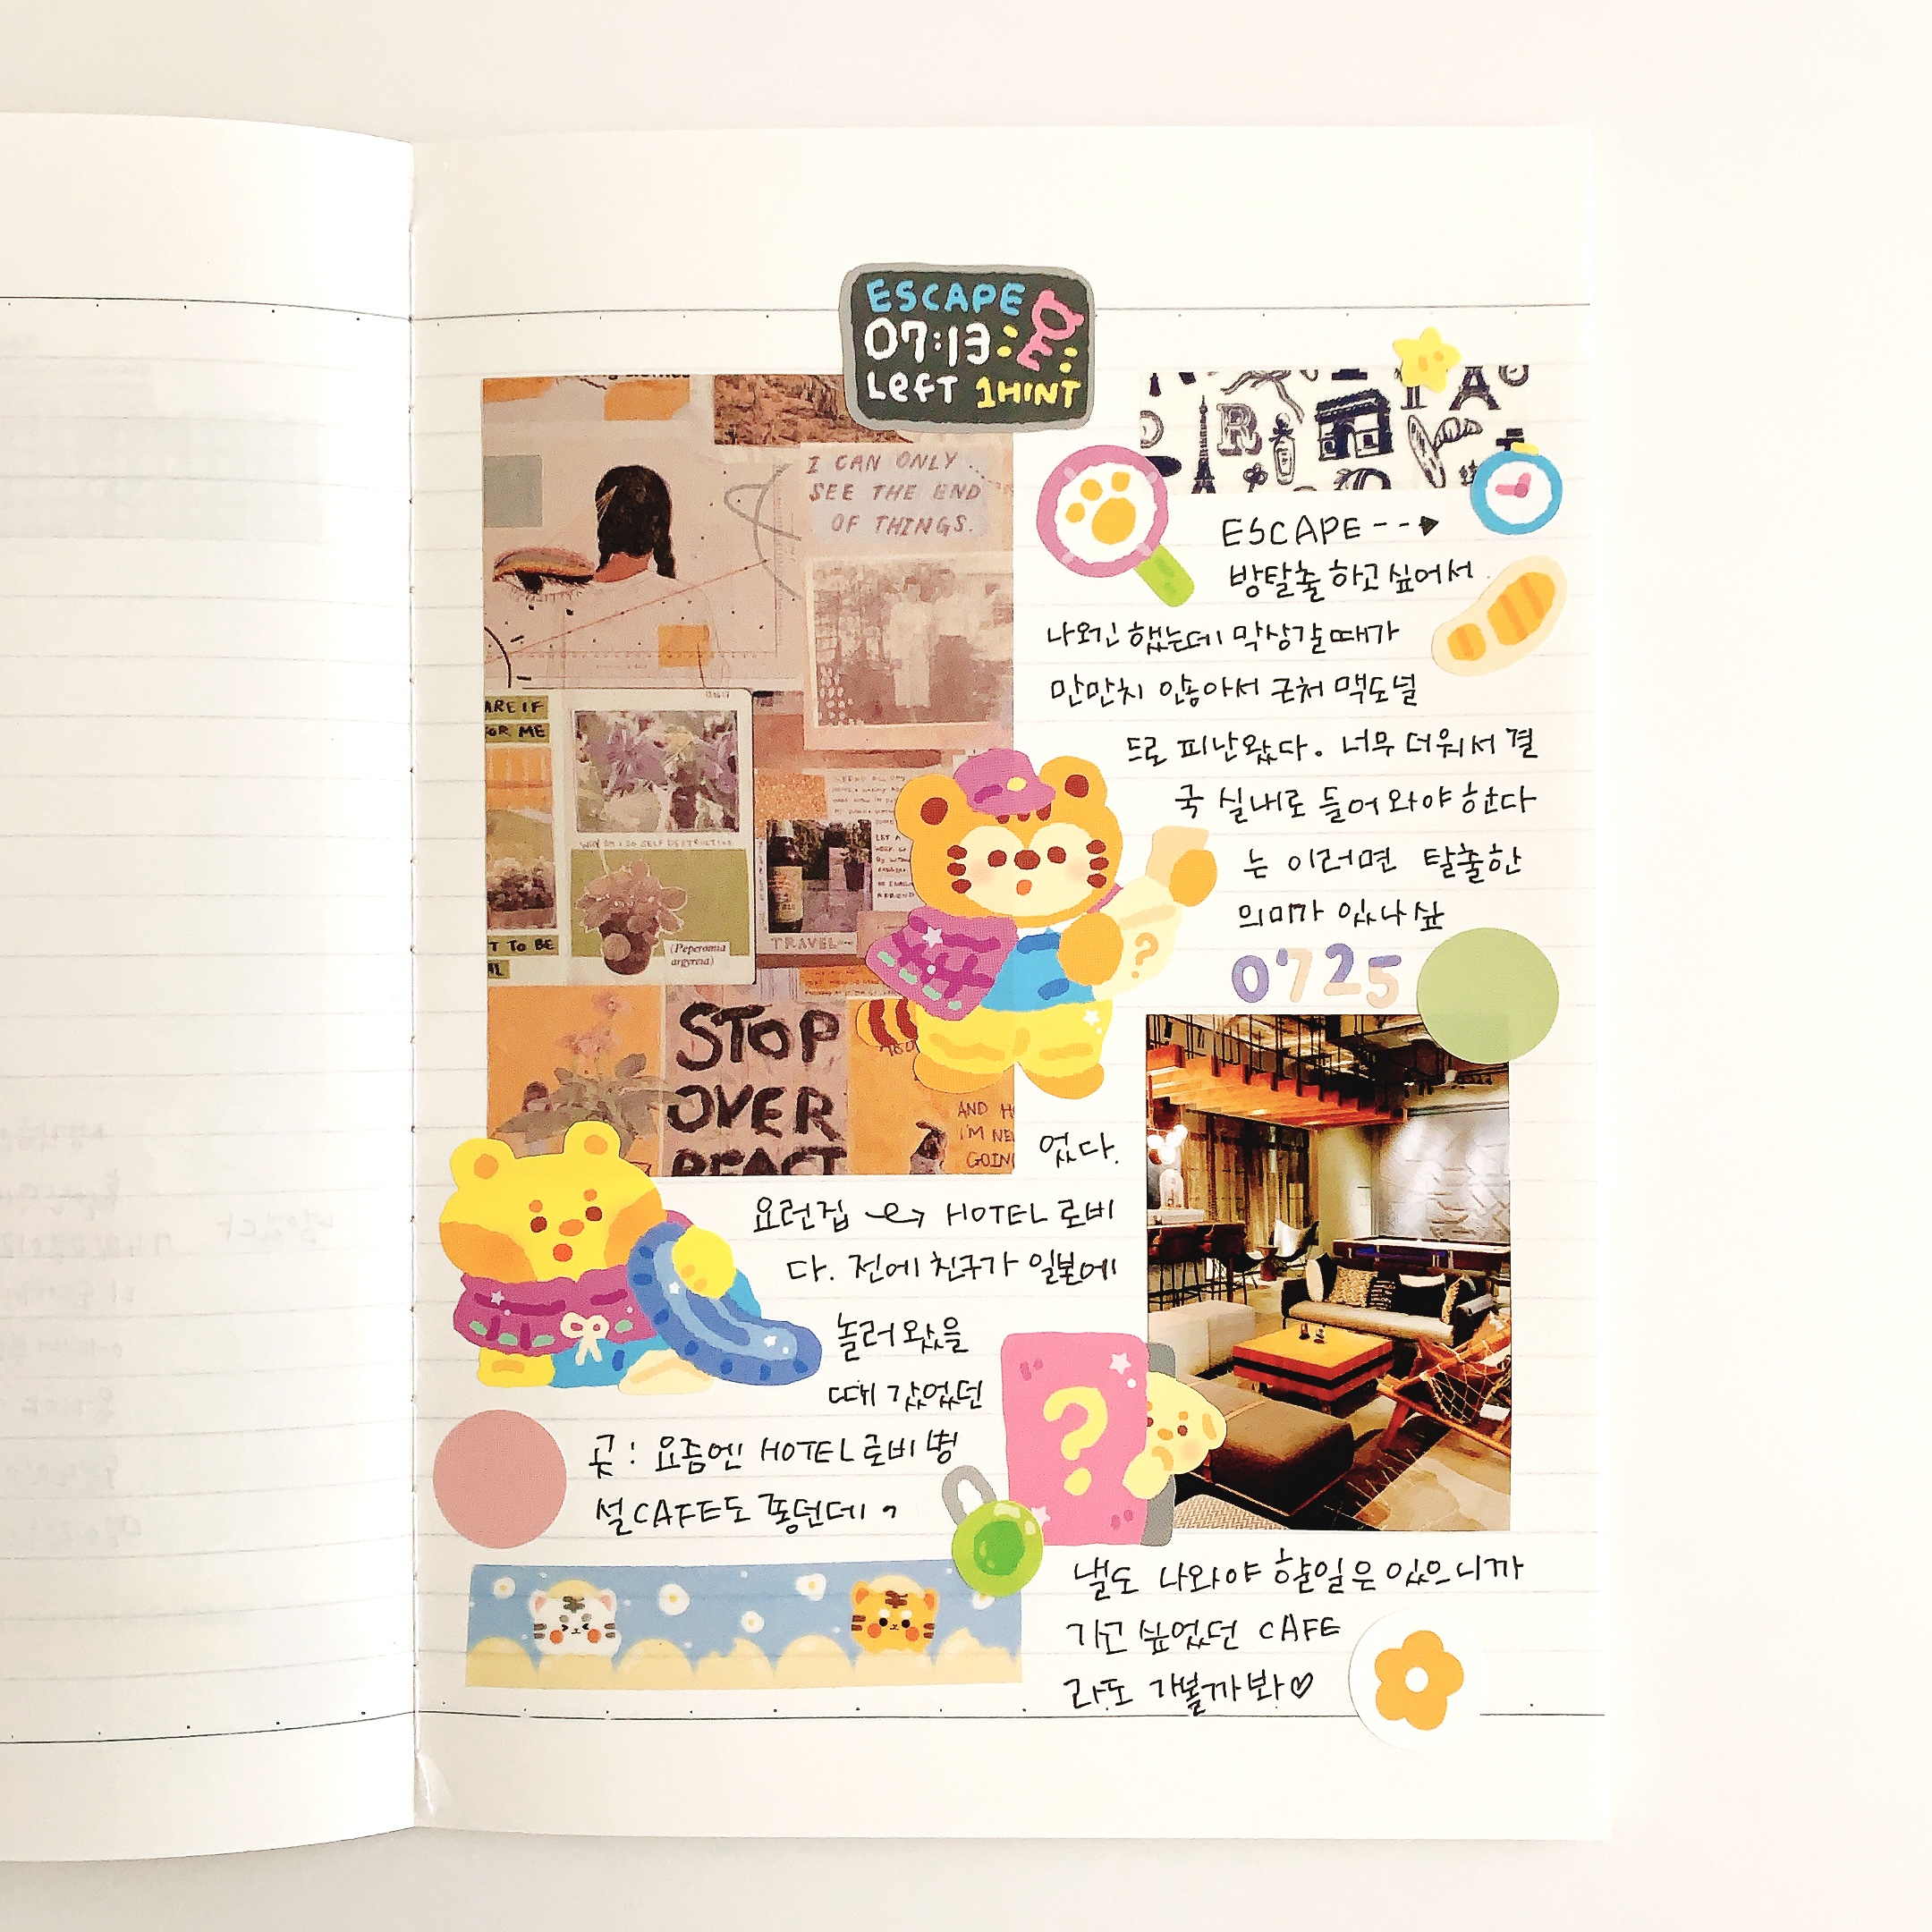 ESCAPE
07:13
Left 1HINT
I CAN ONLY
SEE THE END
OF THINGS.
ARE IF
FOR ME
WHY DO I DO SELF DESTRUCTIVE
(Peperomia
argyreia)
T TO BE
TRAVEL
STOP
OVER
REACT
AND H
I'M NE
GOIN
R
ESCAPE
방탈출 하고싶어서
나오긴 했는데 막상갈때가
만만치 않아서 근처 맥도널
드로 피난왔다. 너무 더워서 결
국 실내로 들어와야 한다
는 이러면 탈출한
의미가 있나 싶
0725
?
었다.
요런집 HOTEL 로비
다. 전에 친구가 일본에
놀러왔을
때 갔었던
곳: 요즘엔 HOTEL 로비 병
설 CAFE도 좋던데,
?
낼도 나와야 할일은 있으니까
가고 싶었던 CAFE
라도 가볼까봐♡